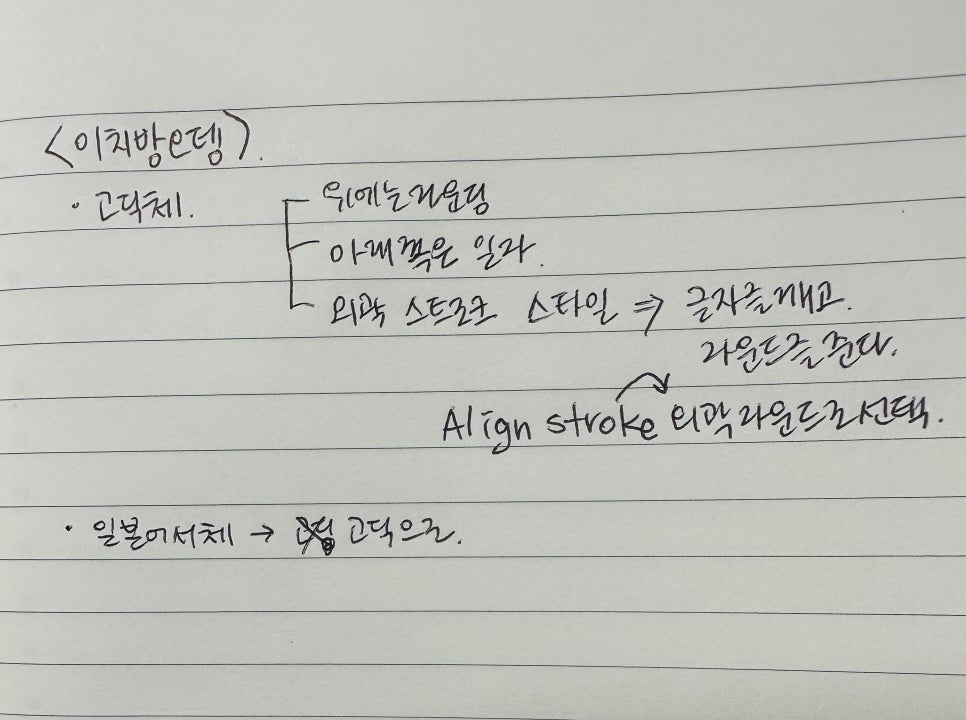 <이치방오뎅>.
· 고딕체.
위에는 라운딩
아래쪽은 일자.
외곽 스트로크 스타일 ⇒ 글자를 깨고.
라운드를 준다.
Align stroke 외곽 라운드로 선택.
· 일본어서체 → 고딕으로.